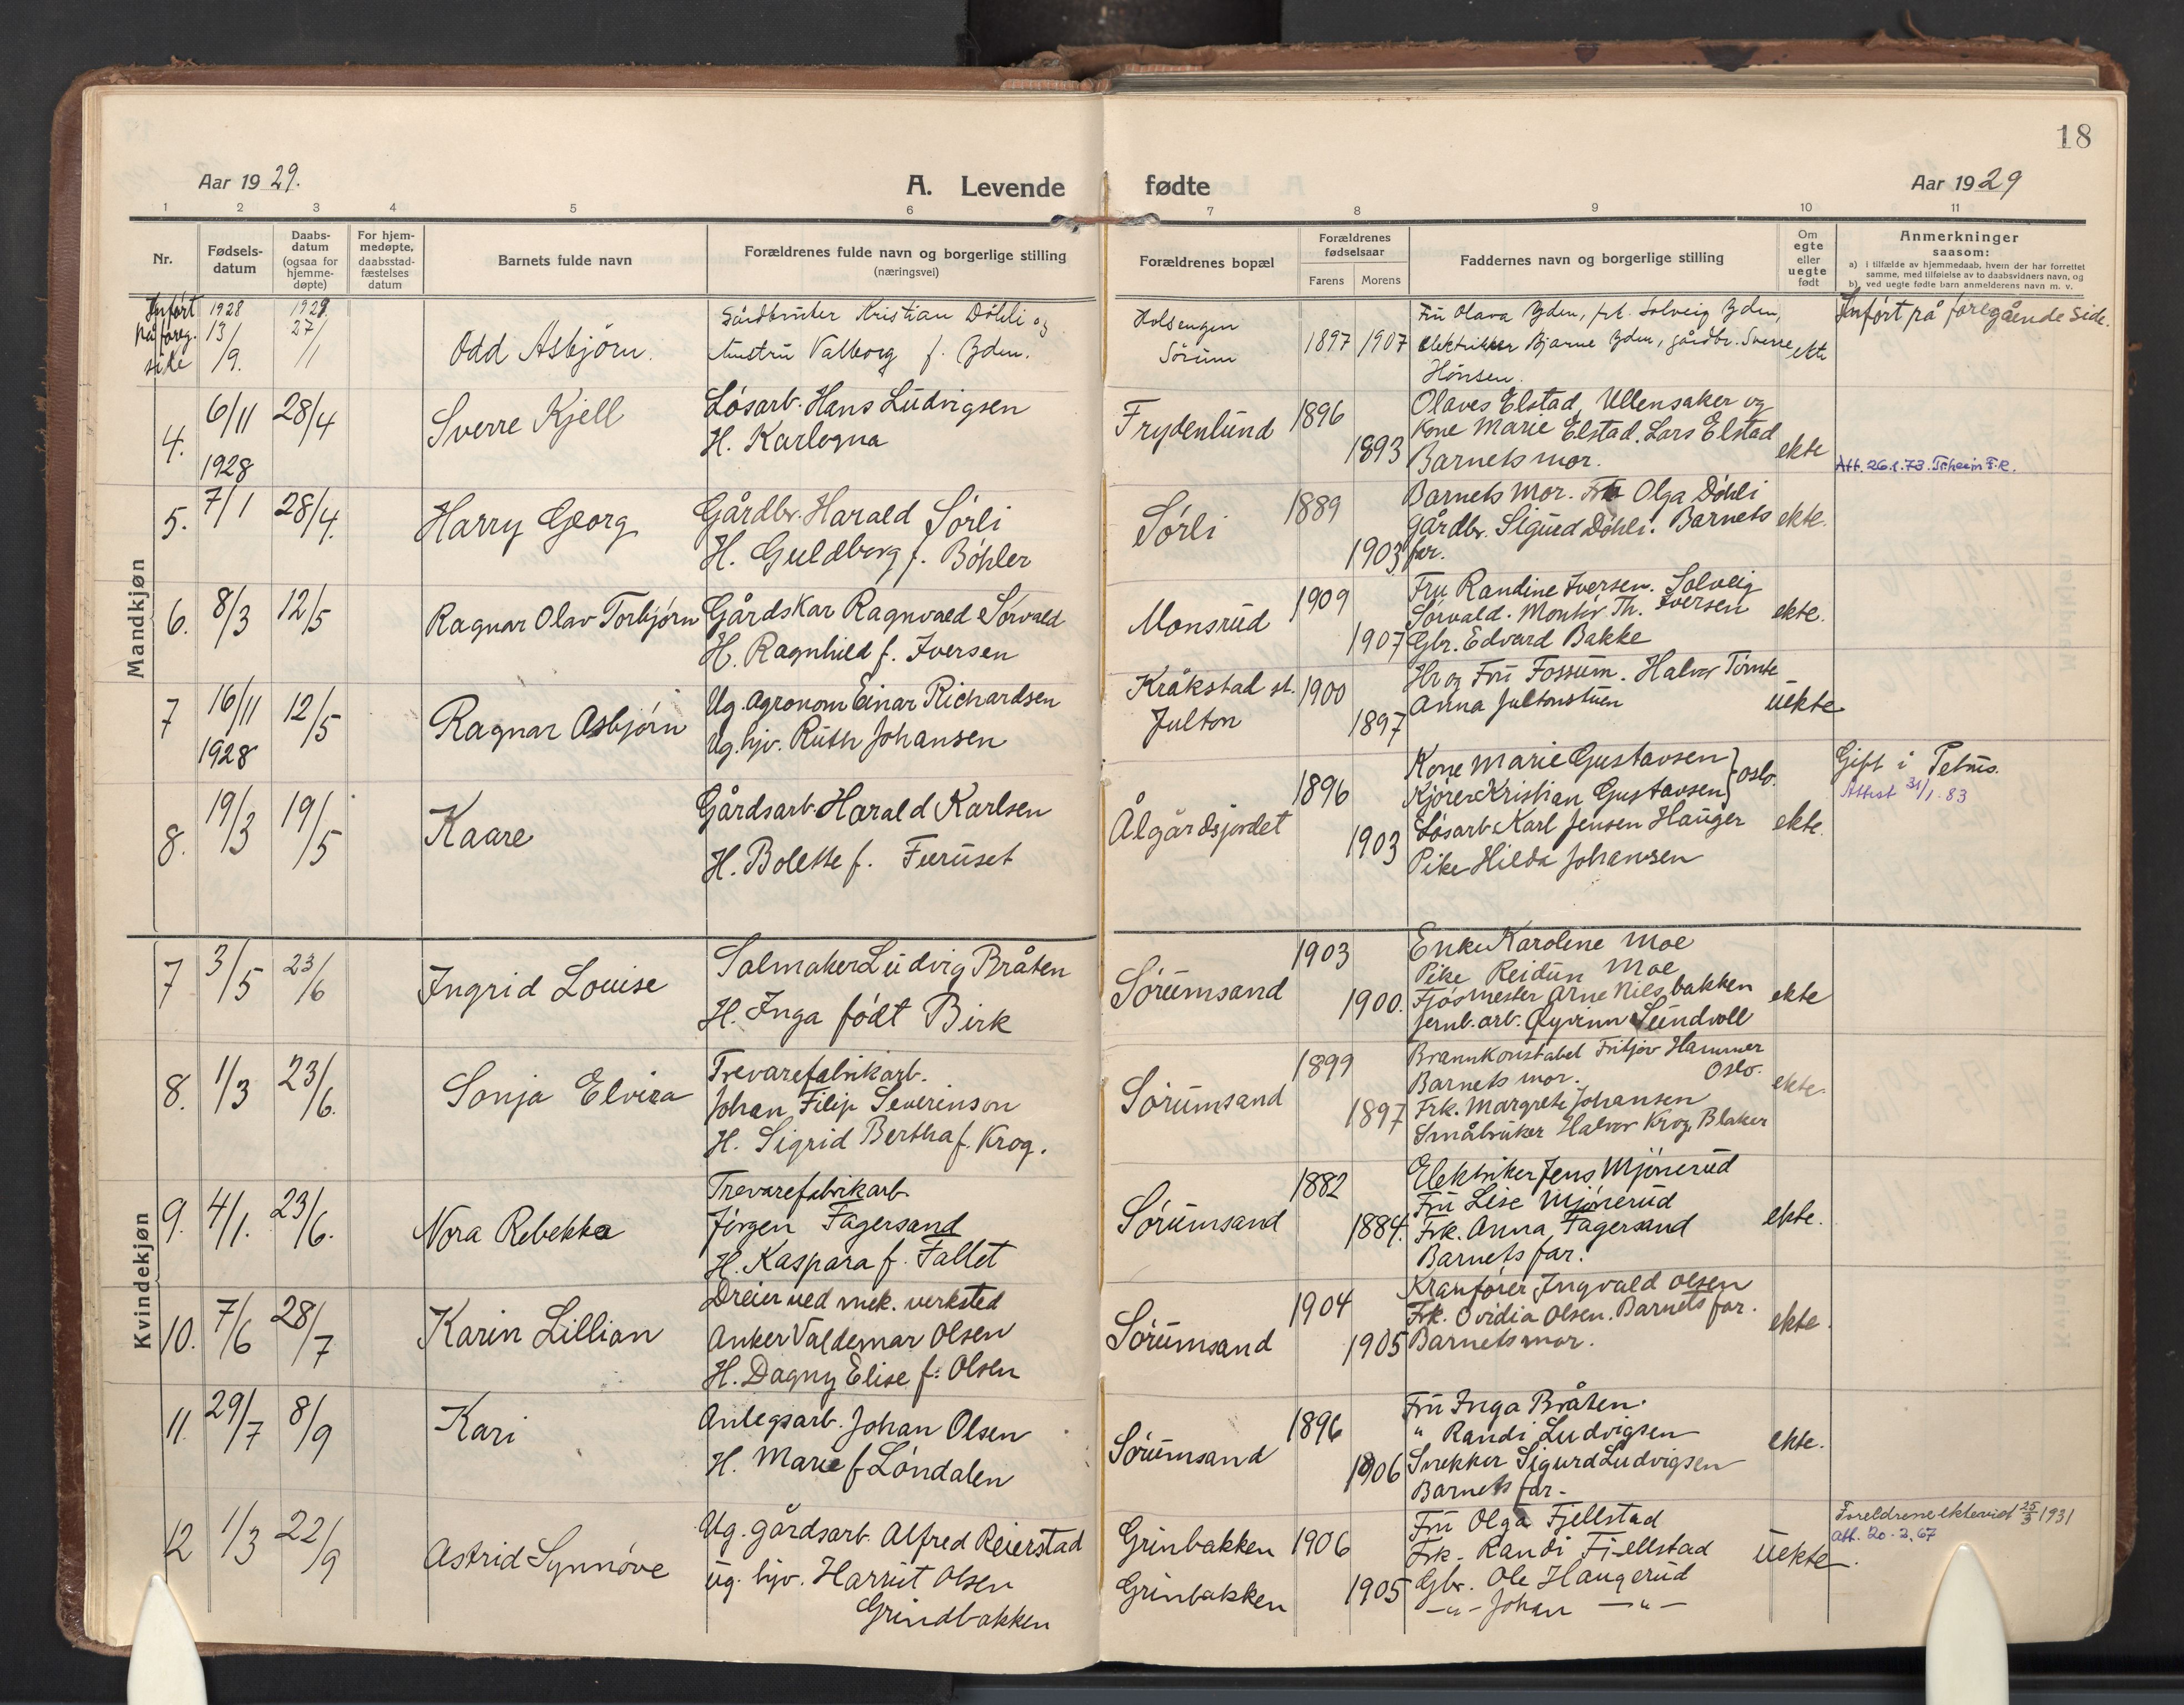 18
Aar 1929.
A. Levende fødte
Aar 1929
1 2 3 4 5 6 7 8 9 10 11
Nr.
Fødsels-
datum
Daabs-
datum
(ogsaa for
hjemme-
døpte)
For hjem-
medøpte,
daabsstad-
fæstelses
datum
Barnets fulde navn
Forældrenes fulde navn og borgerlige stilling
(næringsvei)
Forældrenes bopæl
Forældrenes
fødselsaar
Farens
Morens
Faddernes navn og borgerlige stilling
Om
egte
eller
uegte
født
Anmerkninger
saasom:
a) i tilfælde av hjemmedaab, hvem der har forrettet
samme, med tilføielse av to daabsvidners navn, og
b) ved uegte fødte barn anmelderens navn m. v.
Mandkjøn
Innført
på foreg.
side
1928
13/9.
1929.
27/1
Odd Asbjørn.
Gårdbruker Kristian Døhli og
hustru Valborg f. Yden.
Holsengen
Sørum
1897
1907
Fru Olava Yden, frk. Solveig Yden,
elektriker Bjarne Yden, gårdbr. Sverre
Hønsen.
ekte
Innført på foregående side.
4.
6/11
1928
28/4
Sverre Kjell
Løsarb. Hans Ludvigsen
H. Karlogna
Frydenlund
1896
1893
Olaves Elstad, Ullensaker og
Kone Marie Elstad. Lars Elstad
Barnets mor.
ekte
Att. 26.1.73. F.R.
5.
7/1
28/4.
Harry Georg
Gårdbr. Harald Sørli
H. Guldborg f. Bøhler
Sørli
1889
1903
Barnets mor. Fru Olga Døhli
gårdbr. Sigurd Døhli. Barnets
far.
ekte.
6.
8/3
12/5
Ragnar Olav Torbjørn
Gårdskar Ragnvald Sørvald
H. Ragnhild f. Iversen
Monsrud
1909
1907
Fru Randine Iversen. Solveig
Sørvald. Montør Th. Iversen
Gbr. Edvard Bakke
ekte.
7
16/11
1928
12/5
Ragnar Asbjørn
Ug. agronom Einar Richardsen
Ug. hjv. Ruth Johansen
Kråkstad st.
Julton
1900
1897
Hr og Fru Fossum. Halvor Tømte
Anna Jultonstuen
uekte
8.
19/3
19/5
Kaare
Gårdsarb. Harald Karlsen
H. Bolette f. Furuset
Ålgårdsjordet
1896
1903
Kone Marie Gustavsen
Kjører Kristian Gustavsen } Oslo.
Løsarb. Karl Jensen Hauger
Pike Hilda Johansen
ekte.
Gift i Petrus.
Attest 31/1. 83
Kvindekjøn
7
3/5
23/6
Ingrid Louise
Salmaker Ludvig Bråten
H. Inga født Birk
Sørumsand
1903
1900.
Enke Karoline Moe
Pike Reidun Moe
Fjøsmester Arne Nilsbakken
Jernb. arb. Øyvinn Sundvoll
ekte
8.
1/3
23/6.
Sonja Elvira
Trevarefabrikarb.
Johan Filip Severinson
H. Sigrid Bertha f. Krog.
Sørumsand
1899
1897
Brannkonstabel Fritjov Hammer
Oslo.
Barnets mor.
Frk. Margrete Johansen
Småbruker Halvor Krog, Blaker
ekte.
9.
4/1.
23/6.
Nora Rebekka
Trevarefabrikarb.
Jørgen Fagersand
H. Kaspara f. Fallet
Sørumsand
1882
1884.
Elektriker Jens Mjønerud
Fru Lise Mjønerud
Frk. Anna Fagersand
Barnets far.
ekte.
10.
7/6
28/7
Karin Lillian
Dreier ved mek. verksted
Anker Valdemar Olsen
H. Dagny Elise f. Olsen
Sørumsand
1904
1905
Kranfører Ingvald Olsen
Frk. Ovidia Olsen. Barnets far.
Barnets mor.
ekte.
11.
29/7
8/9
Kari
Anlegsarb. Johan Olsen
H. Marie f Løndalen
Sørumsand
1896
1906
Fru Inga Bråten.
" Randi Ludvigsen
Snekker Sigurd Ludvigsen
Barnets far.
ekte.
12
1/3
22/9
Astrid Synnøve
Ug. gårdsarb. Alfred Reierstad
ug. hjv. Harriet Olsen
Grindbakken
Grinbakken
Grinbakken
1906
1905
Fru Olga Fjellstad
Frk. Randi Fjellstad
Gbr. Ole Haugerud
–"– Johan –"–
Uekte.
Foreldrene ekteviet 25/3 1931
att. 20.2.67